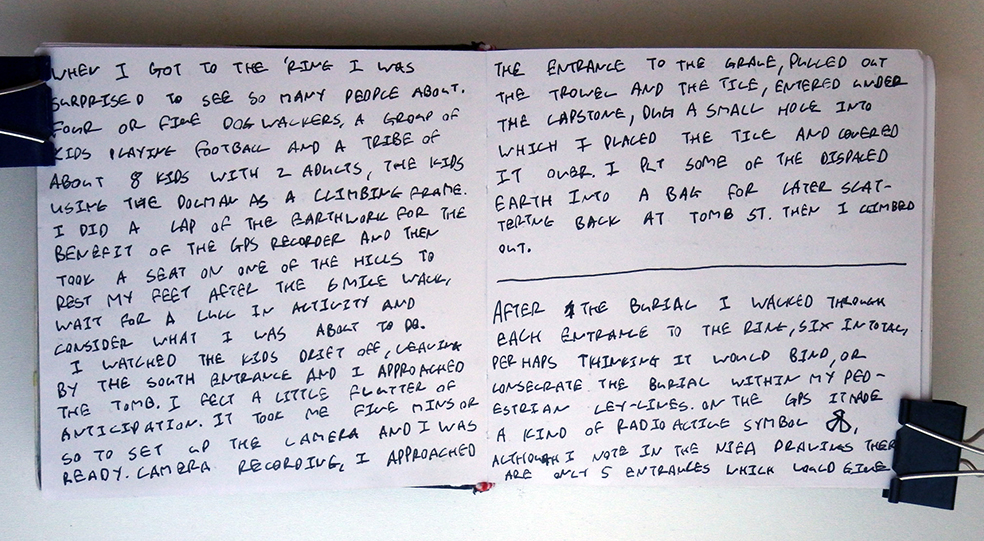 WHEN I GOT TO THE 'RING I WAS
SURPRISED TO SEE SO MANY PEOPLE ABOUT.
FOUR OR FIVE DOG WALKERS, A GROUP OF
KIDS PLAYING FOOTBALL AND A TRIBE OF
ABOUT 8 KIDS WITH 2 ADULTS, THE KIDS
USING THE DOLMAN AS A CLIMBING FRAME.
I DID A LAP OF THE EARTHWORK FOR THE
BENEFIT OF THE GPS RECORDER AND THEN
TOOK A SEAT ON ONE OF THE HILLS TO
REST MY FEET AFTER THE 6 MILE WALK,
WAIT FOR A LULL IN ACTIVITY AND
CONSIDER WHAT I WAS ABOUT TO DO.
I WATCHED THE KIDS DRIFT OFF, LEAVING
BY THE SOUTH ENTRANCE AND I APPROACHED
THE TOMB. I FELT A LITTLE FLUTTER OF
ANTICIPATION. IT TOOK ME FIVE MINS OR
SO TO SET UP THE CAMERA AND I WAS
READY. CAMERA RECORDING, I APPROACHED
THE ENTRANCE TO THE GRAVE, PULLED OUT
THE TROWEL AND THE TILE, ENTERED UNDER
THE CAPSTONE, DUG A SMALL HOLE INTO
WHICH I PLACED THE TILE AND COVERED
IT OVER. I PUT SOME OF THE DISPACED
EARTH INTO A BAG FOR LATER SCAT-
TERING BACK AT TOMB ST. THEN I CLIMBED
OUT.
AFTER THE BURIAL I WALKED THROUGH
EACH ENTRANCE TO THE RING, SIX IN TOTAL,
PERHAPS THINKING IT WOULD BIND, OR
CONSECRATE THE BURIAL WITHIN MY PED-
ESTRIAN LEY-LINES. ON THE GPS IT MADE
A KIND OF RADIOACTIVE SYMBOL,
ALTHOUGH I NOTE IN THE NIEA DRAWINGS THERE
ARE ONLY 5 ENTRANCES WHICH WOULD GIVE